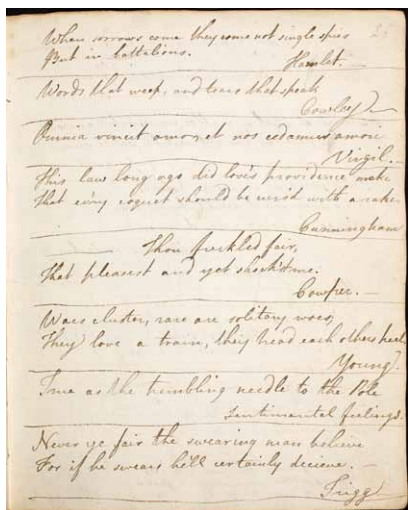 When sorrows come they come not single spies
But in battalions.
Hamlet.
Words that weep, and tears that speak
Cowley
Omnia vincit amor, et nos cedamus amori
Virgil.
This law long ago did love's providence make
That ev'ry coquet should be curs'd with a rake
Cunningham
Thou freckled fair,
That pleasest and yet shock'st me.
Cowper.
Woes cluster, rare are solitary woes,
They love a train, they tread each others heel
Young
True as the trembling needle to the Pole
Sentimental feelings.
Never ye fair the swearing man believe
For if he swears he'll certainly decieve.
Trigg